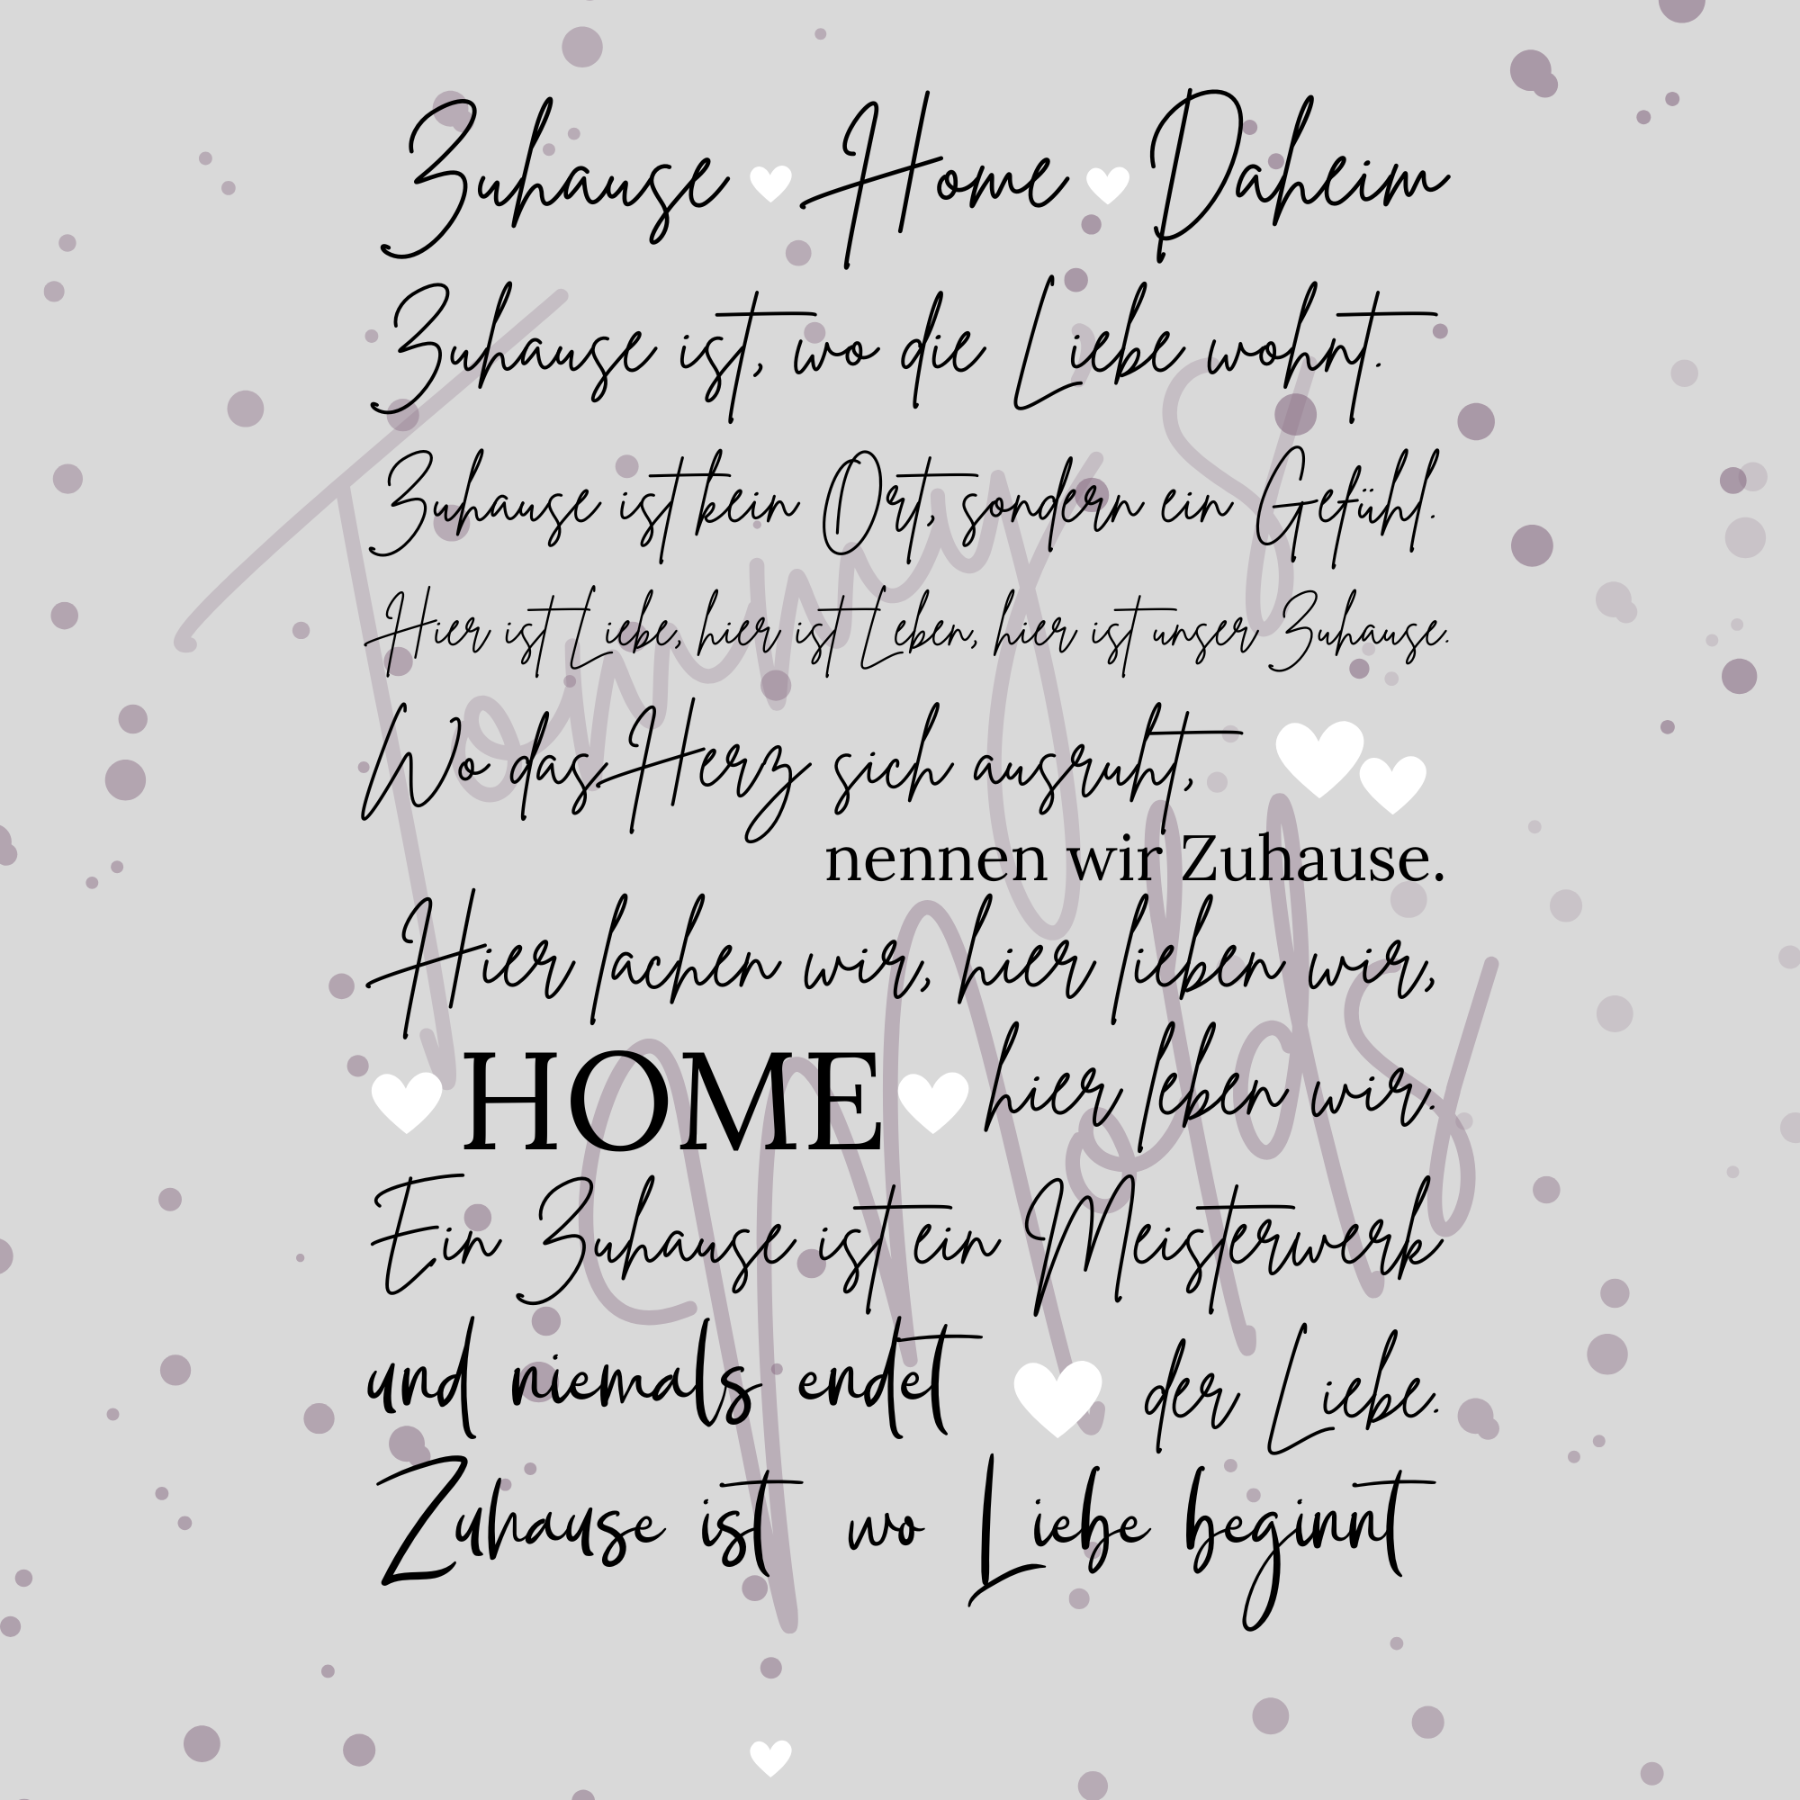 Zuhause Home Daheim
Zuhause ist, wo die Liebe wohnt.
Zuhause ist kein Ort, sondern ein Gefühl.
Hier ist Liebe, hier ist Leben, hier ist unser Zuhause.
Wo das Herz sich ausruht,
nennen wir Zuhause.
Hier lachen wir, hier lieben wir,
HOME hier leben wir.
Ein Zuhause ist ein Meisterwerk
und niemals endet der Liebe.
Zuhause ist wo Liebe beginnt
Tommy's